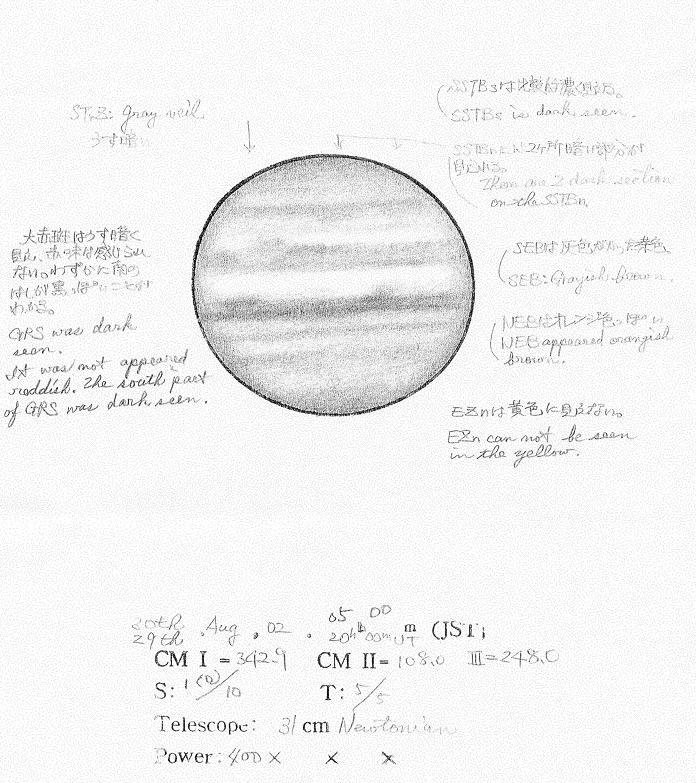 STrZ: Gray veil
うす暗い
SSTBsは比較的濃く見える。
SSTBs is dark seen.
SSTBnに2ヶ所暗い部分が
見られる。
There are 2 dark section
on the SSTBn
大赤斑はうす暗く
見え、赤味は感じられ
ない。わずかに南の
はしが黒っぽいことが
わかる。
GRS was dark
seen.
It was not appeared
reddish. The south part
of GRS was dark seen.
SEBは灰色がかった茶色
SEB: Grayish brown.
NEBはオレンジ色っぽい
NEB appeared orangish
brown.
EZnは黄色に見えない。
EZn can not be seen
in the yellow.
30th 05 00
29th . Aug , 02 . 20h 00m UT m (JST)
CM I = 342.9 CM II = 108.0 III=248.0
S: /10 T: 5/5
Telescope: 31 cm Newtonian
Power: 400 × × ×